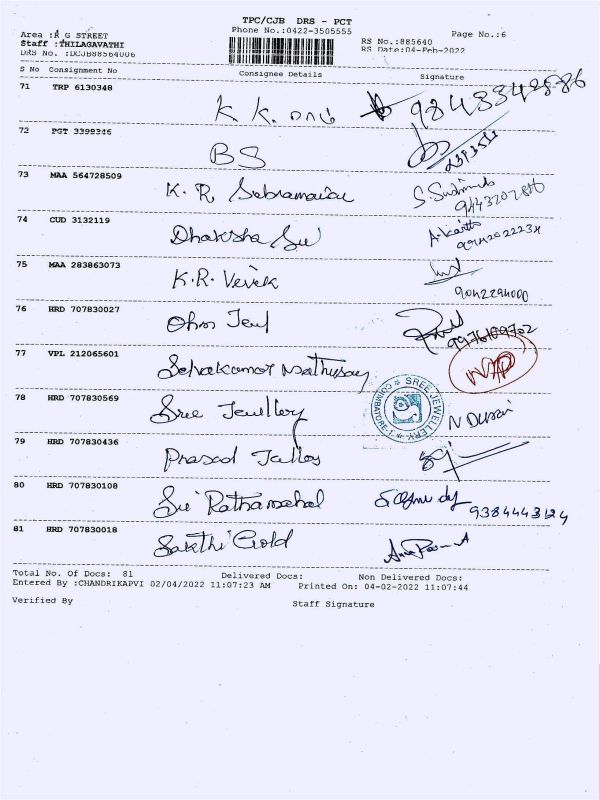 TPC/CJB DRS - PCT
Phone No.:0422-3505555
Area :R G STREET
Staff :THILAGAVATHI
DRS No. :DCJB88564006
RS No.:885640
RS Date:04-Feb-2022
Page No.:6
S No Consignment No Consignee Details Signature
71 TRP 6130348 K K. 9843342586
72 PGT 3398346 BS
73 MAA 564728509 K. R Subramaniau S.
74 CUD 3132119 Dhaksha Sri
75 MAA 283863073 K.R. Vevek 9042294000
76 HRD 707830027 Ohm Jewl 9976169702
77 VPL 212065601
78 HRD 707830569 Sree Jewllery SREE JEWELLERY COIMBATORE-1 N Durai
79 HRD 707830436 Prasad
80 HRD 707830108 Sri Rathamahal 9384443124
81 HRD 707830018 Sakthi Gold
Total No. Of Docs: 81 Delivered Docs: Non Delivered Docs:
Entered By :CHANDRIKAPVI 02/04/2022 11:07:23 AM Printed On: 04-02-2022 11:07:44
Verified By Staff Signature